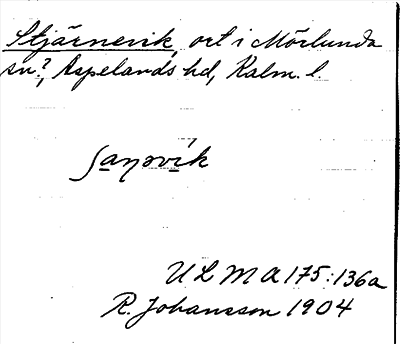 Stjärnevik, ort i Mörlunda
sn?, Aspelands hd, Kalm. l.
ʃaŋəvik
ULMA 175:136a
R. Johansson 1904